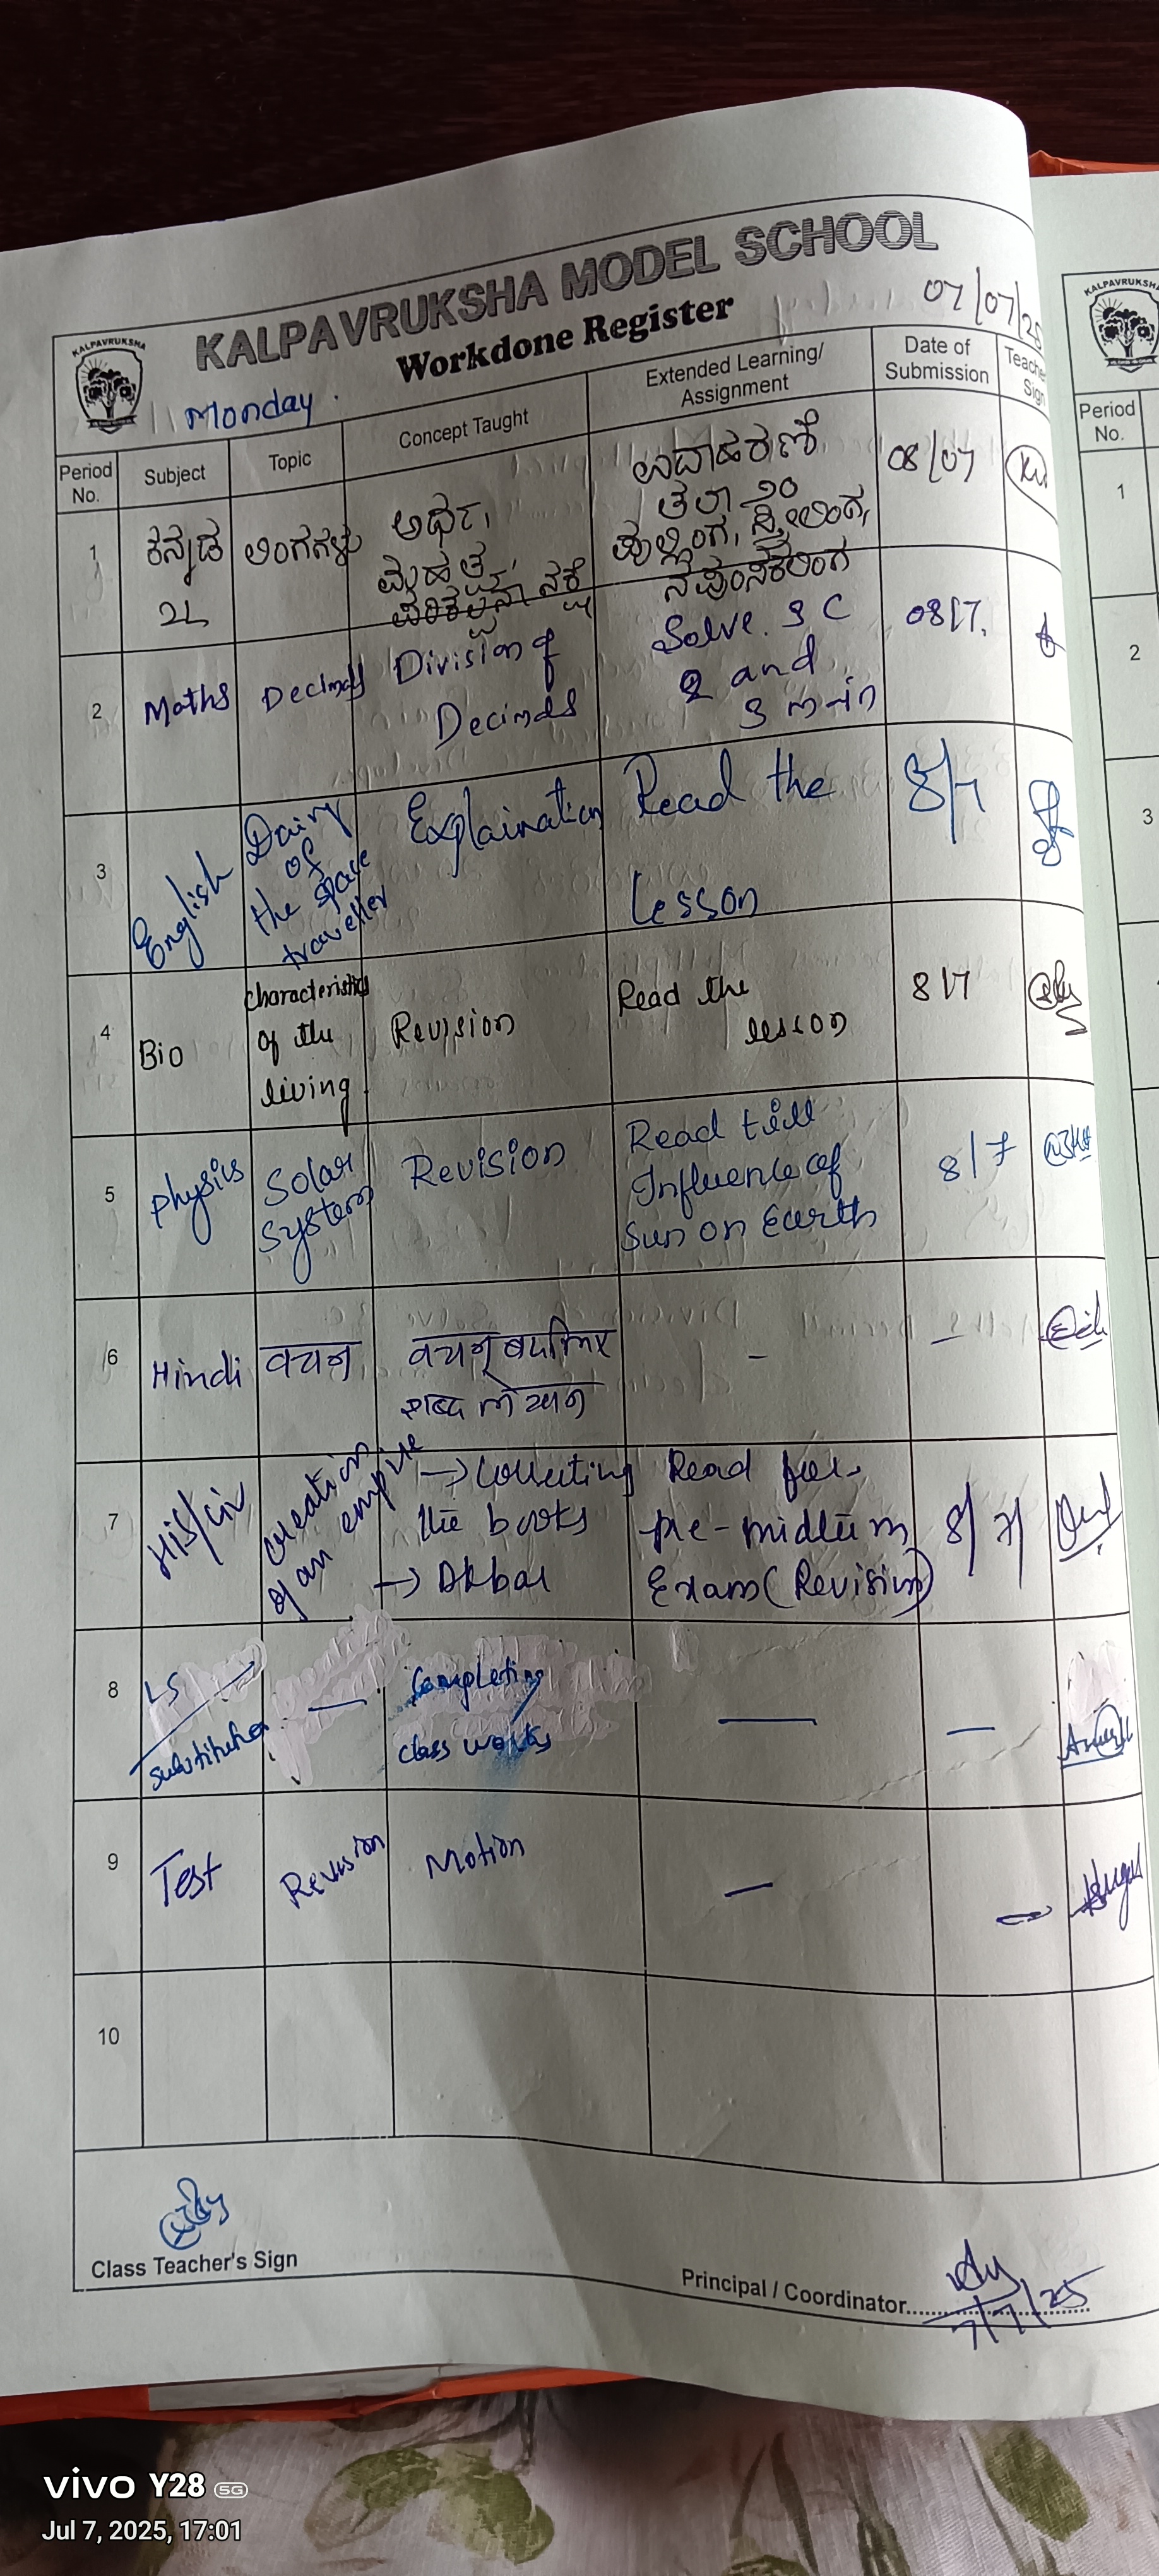 KALPAVRUKSHA MODEL SCHOOL
Workdone Register
07/07/25
KALPAVRUKSHA
Monday
Period No.
Subject
Topic
Concept Taught
Extended Learning/ Assignment
Date of Submission
Teache
Sign
1
ಕನ್ನಡ
2L
ಲಿಂಗಗಳು
ಅರ್ಥ,
ಮಹತ್ವ,
ಉದಾಹರಣೆ
ತಲಾ ೨೦
ಪುಲ್ಲಿಂಗ, ಸ್ತ್ರೀಲಿಂಗ,
ನಪುಂಸಕಲಿಂಗ
08/07
2
Maths
Decimals
Division of
Decimals
Solve. 3 C
2 and
3 m-in
08/7.
3
English
Dairy
of
the space
traveller
Explaination
Read the
lesson
8/7
4
Bio
Characteristics
of the
living.
Revision
Read the
lesson
8/7
5
Physics
Solar
System
Revision
Read till
Influence of
Sun on Earth
8/7
6
Hindi
वचन
वचन
शब्द लेखन
-
-
7
His/civ
Creation
of an empire
→ Collecting
the books
→ Akbar
Read for
Pre-midterm
Exam (Revision)
8/7/
8
LS
Substitution
—
Completing
class works
—
—
9
Test
Revision
Motion
—
—
10
Class Teacher's Sign
Principal / Coordinator
7/7/25
KALPAVRUKSHA
Period No.
1
2
3
vivo Y28 5G
Jul 7, 2025, 17:01